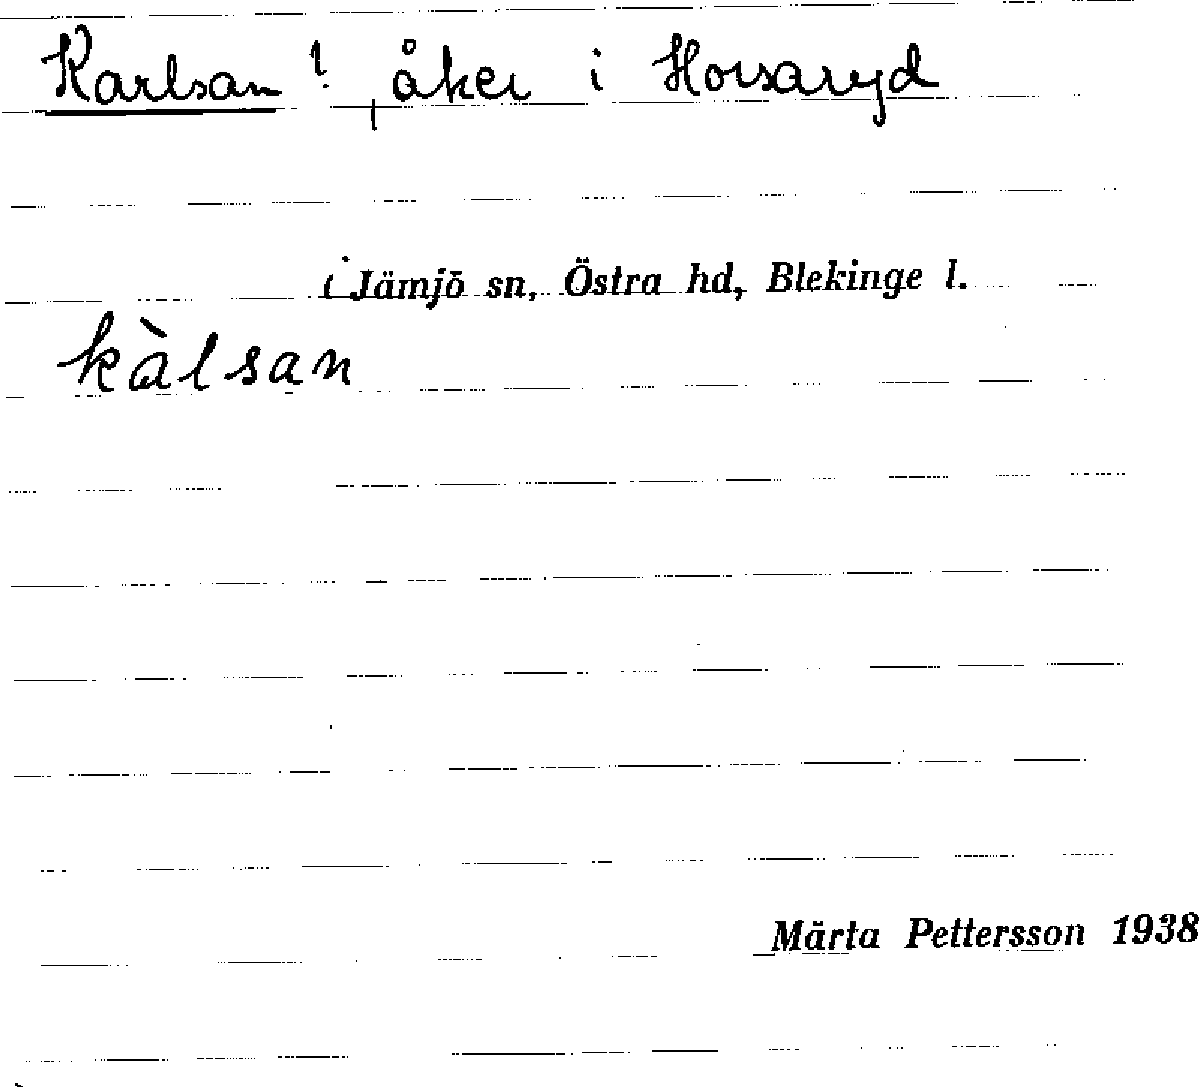 Karlsan !, åker i Horsaryd
i Jämjö sn, Östra hd, Blekinge l.
kàlsan
Märta Pettersson 1938